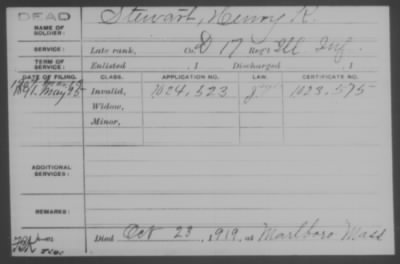 DEAD
NAME OF SOLDIER: Stewart, Henry R.
SERVICE: Late rank, Co. D 17 Reg't Ill Inf.
TERM OF SERVICE: Enlisted , 1 Discharged , 1
DATE OF FILING. CLASS. APPLICATION NO. LAW. CERTIFICATE NO.
1891. May 25 Invalid, 1024,523 1023,575
Widow,
Minor,
ADDITIONAL SERVICES:
REMARKS:
Died Oct 23, 1919, at Marlboro Mass